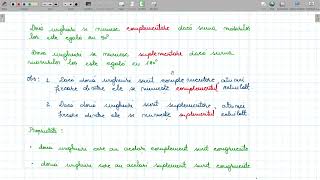 Două unghiuri se numesc complementare dacă suma măsurilor
lor este egală cu 90°
Două unghiuri se numesc suplementare dacă suma
măsurilor lor este egală cu 180°
Obs: 1. Dacă două unghiuri sunt complementare, atunci
fiecare dintre ele se numește complementul celuilalt
2. Dacă două unghiuri sunt suplementare, atunci
fiecare dintre ele se numește suplementul celuilalt
Proprietăți:
• două unghiuri care au același complement sunt congruente
• două unghiuri care au același suplement sunt congruente